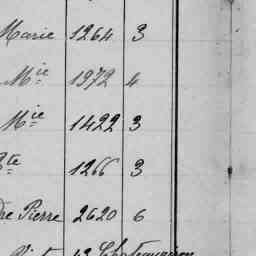 Marie 1264 3
Mie 1972 4
Mie 1422 3
Bte 1266 3
Pierre 2620 6